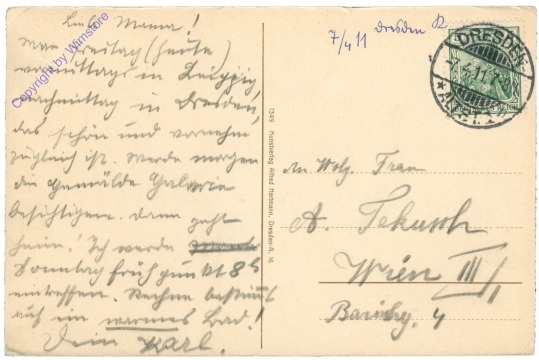 Liebe Mama!
War Freitag (heute)
vormittags in Leipzig,
nachmittag in Dresden,
das schön und vornehm
zugleich ist. Werde morgen
die Gemälde Galerie
besichtigen. Dann geht
heim! Ich werde
Sonntag früh punkt 8h
eintreffen. Rechne bestimmt
auf ein warmes Bad!
Dein Karl.
Copyright by Wimstore
7/4 11 Dresden
DRESDEN
7.4.11.
ALTST.
1349 Kunstverlag Alfred Hartmann, Dresden-A. 16
An Wolg. Frau
A. Tekusch
Wien III/
4